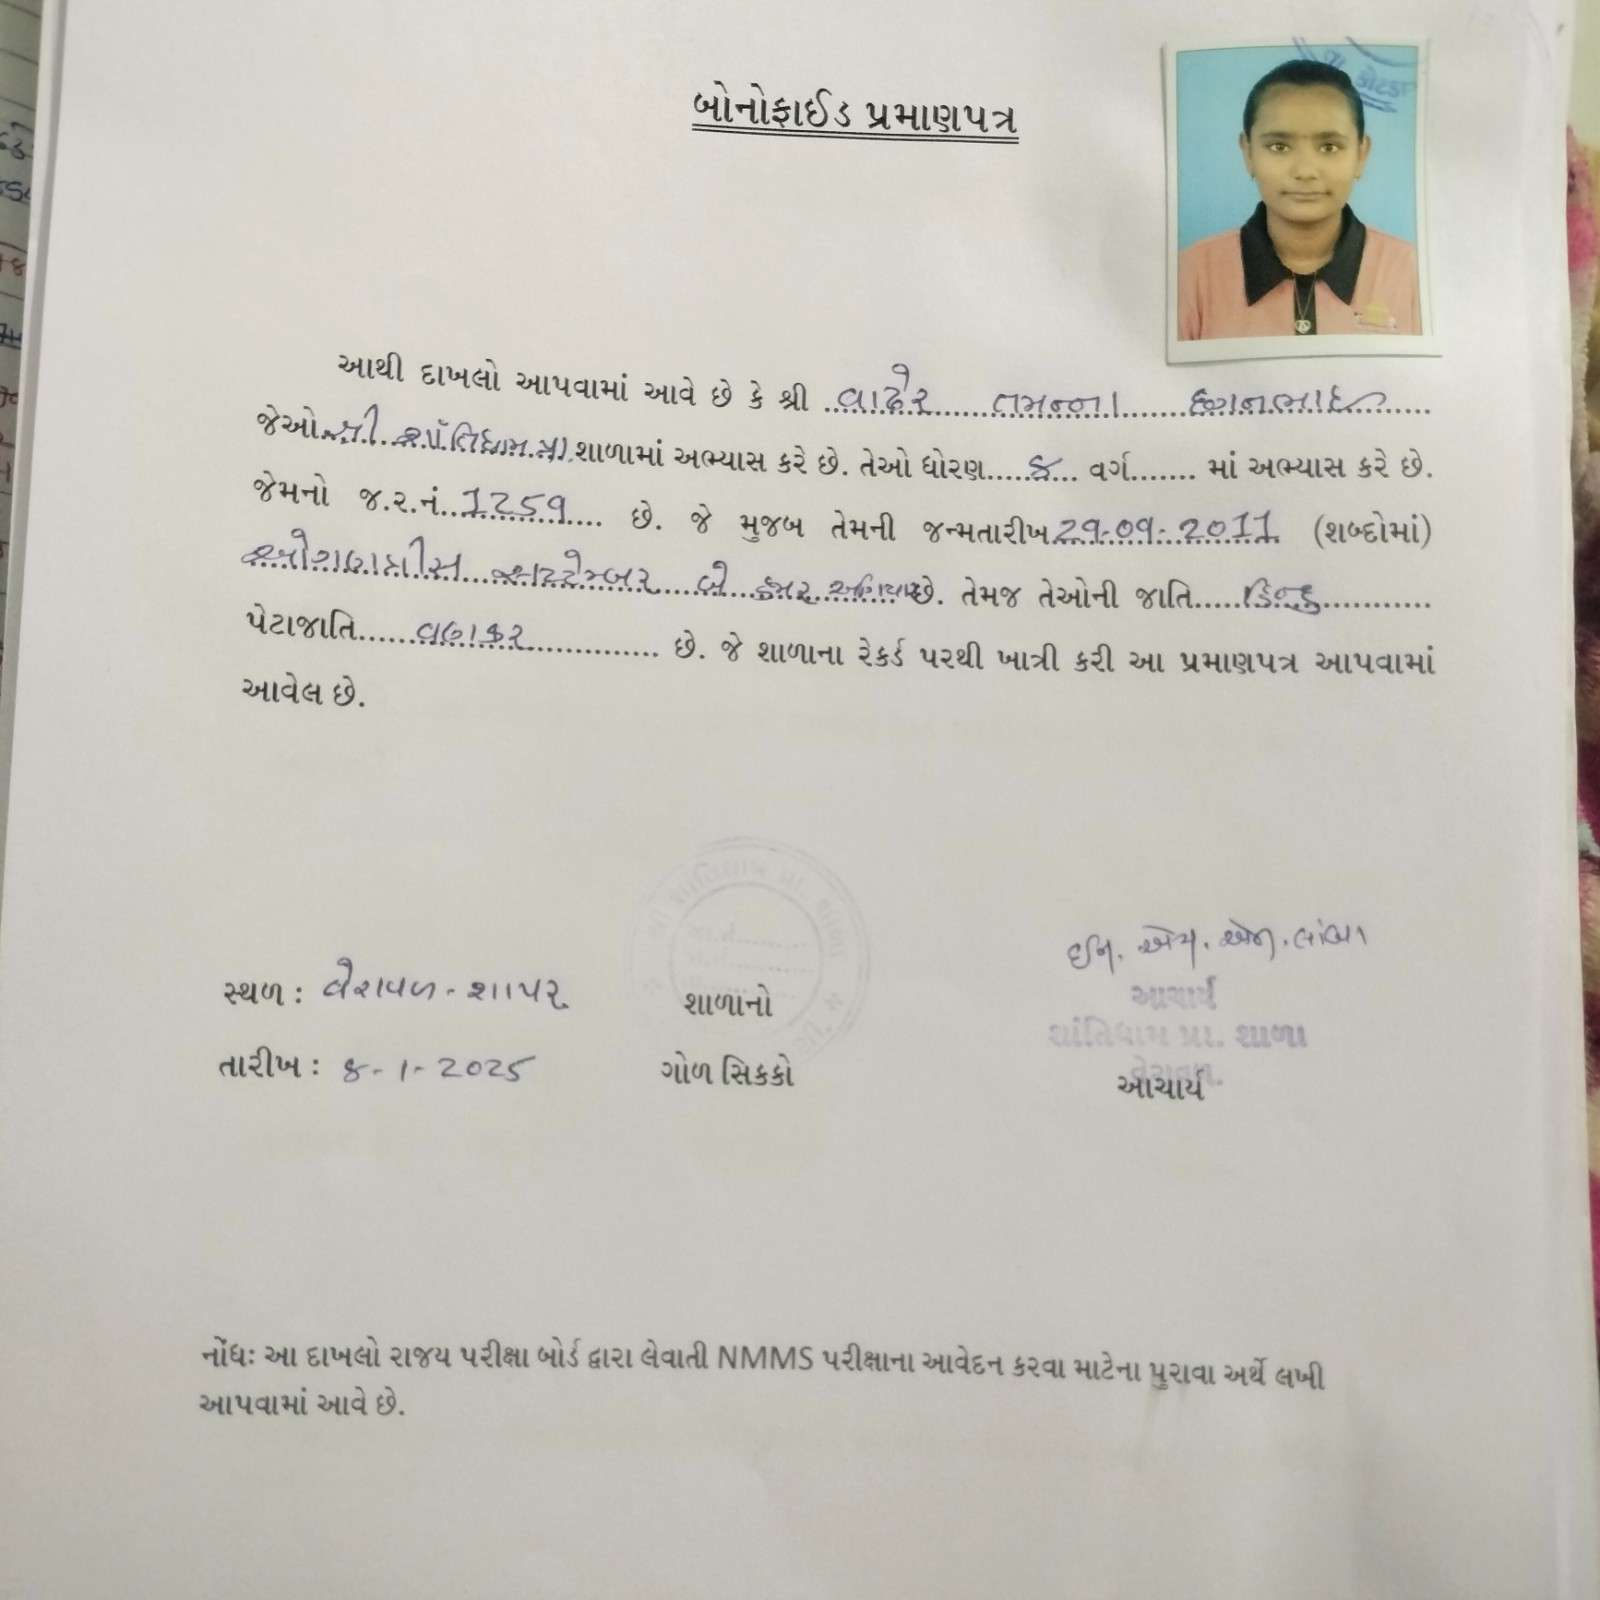 બોનોફાઈડ પ્રમાણપત્ર
કોટડા
આથી દાખલો આપવામાં આવે છે કે શ્રી ..વાઢેર......તમન્ના......છગનભાઈ......
જેઓ..શ્રી..શાંતિધામ પ્રા.શાળામાં અભ્યાસ કરે છે. તેઓ ધોરણ.....૮... વર્ગ....... માં અભ્યાસ કરે છે.
જેમનો જ.ર.નં...1259.... છે. જે મુજબ તેમની જન્મતારીખ 29-09-2011 (શબ્દોમાં)
ઓગણત્રીસ...સપ્ટેમ્બર.....બે..હજાર..અગિયાર છે. તેમજ તેઓની જાતિ.....હિન્દુ...........
પેટાજાતિ......વણકર.............. છે. જે શાળાના રેકર્ડ પરથી ખાત્રી કરી આ પ્રમાણપત્ર આપવામાં
આવેલ છે.
ઈન. એચ. એન. લાંબા
સ્થળ : વેરાવળ - શાપર
શાળાનો
આચાર્ય
શાંતિધામ પ્રા. શાળા
વેરાવળ.
તારીખ : ૮-1-2025
ગોળ સિકકો
આચાર્ય
નોંધઃ આ દાખલો રાજય પરીક્ષા બોર્ડ દ્વારા લેવાતી NMMS પરીક્ષાના આવેદન કરવા માટેના પુરાવા અર્થે લખી
આપવામાં આવે છે.